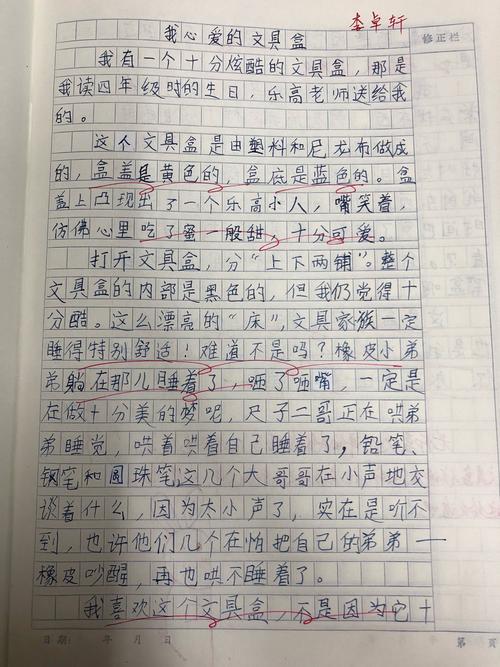 李卓轩
我心爱的文具盒
修正栏
我有一个十分炫酷的文具盒,那是
我读四年级时的生日,乐高老师送给我
的。
这个文具盒是由塑料和尼龙布做成
的,盒盖是黄色的,盒底是蓝色的。盒
盖上凸现出了一个乐高小人,嘴笑着,
仿佛心里吃了蜜一般甜,十分可爱。
打开文具盒,分“上下两铺”。整个
文具盒的内部是黑色的,但我仍觉得十
分酷。这么漂亮的“床”,文具家族一定
睡得特别舒适!难道不是吗?橡皮小弟
弟躺在那儿睡着了,咂了咂嘴,一定是
在做十分美的梦呢,尺子二哥正在哄弟
弟睡觉,哄着哄着自己睡着了,铅笔、
钢笔和圆珠笔这几个大哥哥在小声地交
谈着什么,因为太小声了,实在是听不
到,也许他们几个在怕把自己的弟弟一
橡皮吵醒,再也哄不睡着了。
我喜欢这个文具盒,不是因为它十
日期: 年 月 日 第 页